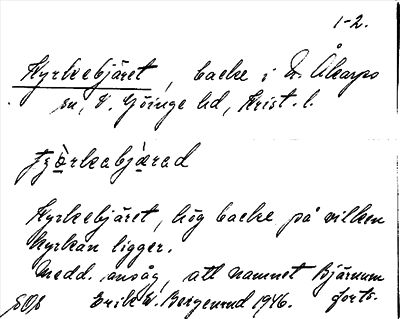 1-2.
Kyrkebjäret, backe i N. Åkarps
sn, V. Göinge hd, Krist. l.
kyrkebjäret, hög backe på vilken
kyrkan ligger.
Medd. ansåg, att namnet Bjärnum
Erik W. Bergenrud 1946. forts.